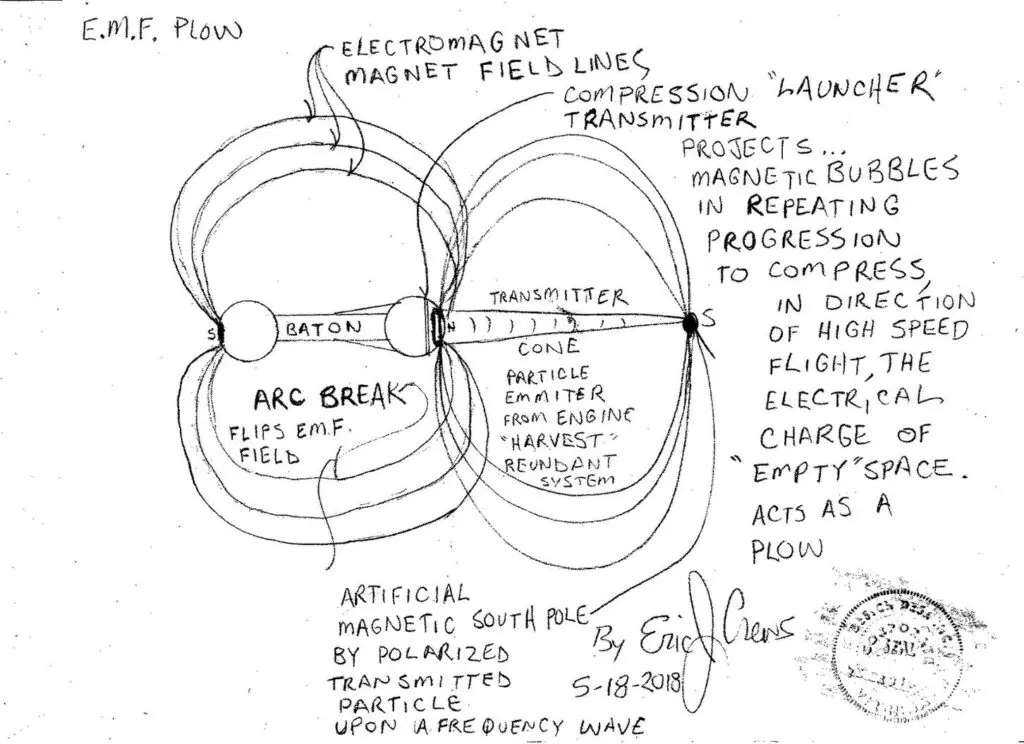 E.M.F. PLOW
ELECTROMAGNET
MAGNET FIELD LINES
COMPRESSION "LAUNCHER"
TRANSMITTER
PROJECTS...
MAGNETIC BUBBLES
IN REPEATING
PROGRESSION
TO COMPRESS,
IN DIRECTION
OF HIGH SPEED
FLIGHT, THE
ELECTRICAL
CHARGE OF
"EMPTY" SPACE.
ACTS AS A
PLOW
S
BATON
N
TRANSMITTER
CONE
S
PARTICLE
EMMITER
FROM ENGINE
"HARVEST."
REUNDANT
SYSTEM
ARC BREAK
FLIPS E.M.F.
FIELD
ARTIFICIAL
MAGNETIC SOUTH POLE
BY POLARIZED
TRANSMITTED
PARTICLE
UPON A FREQUENCY WAVE
By Eric J Crews
5-18-2018